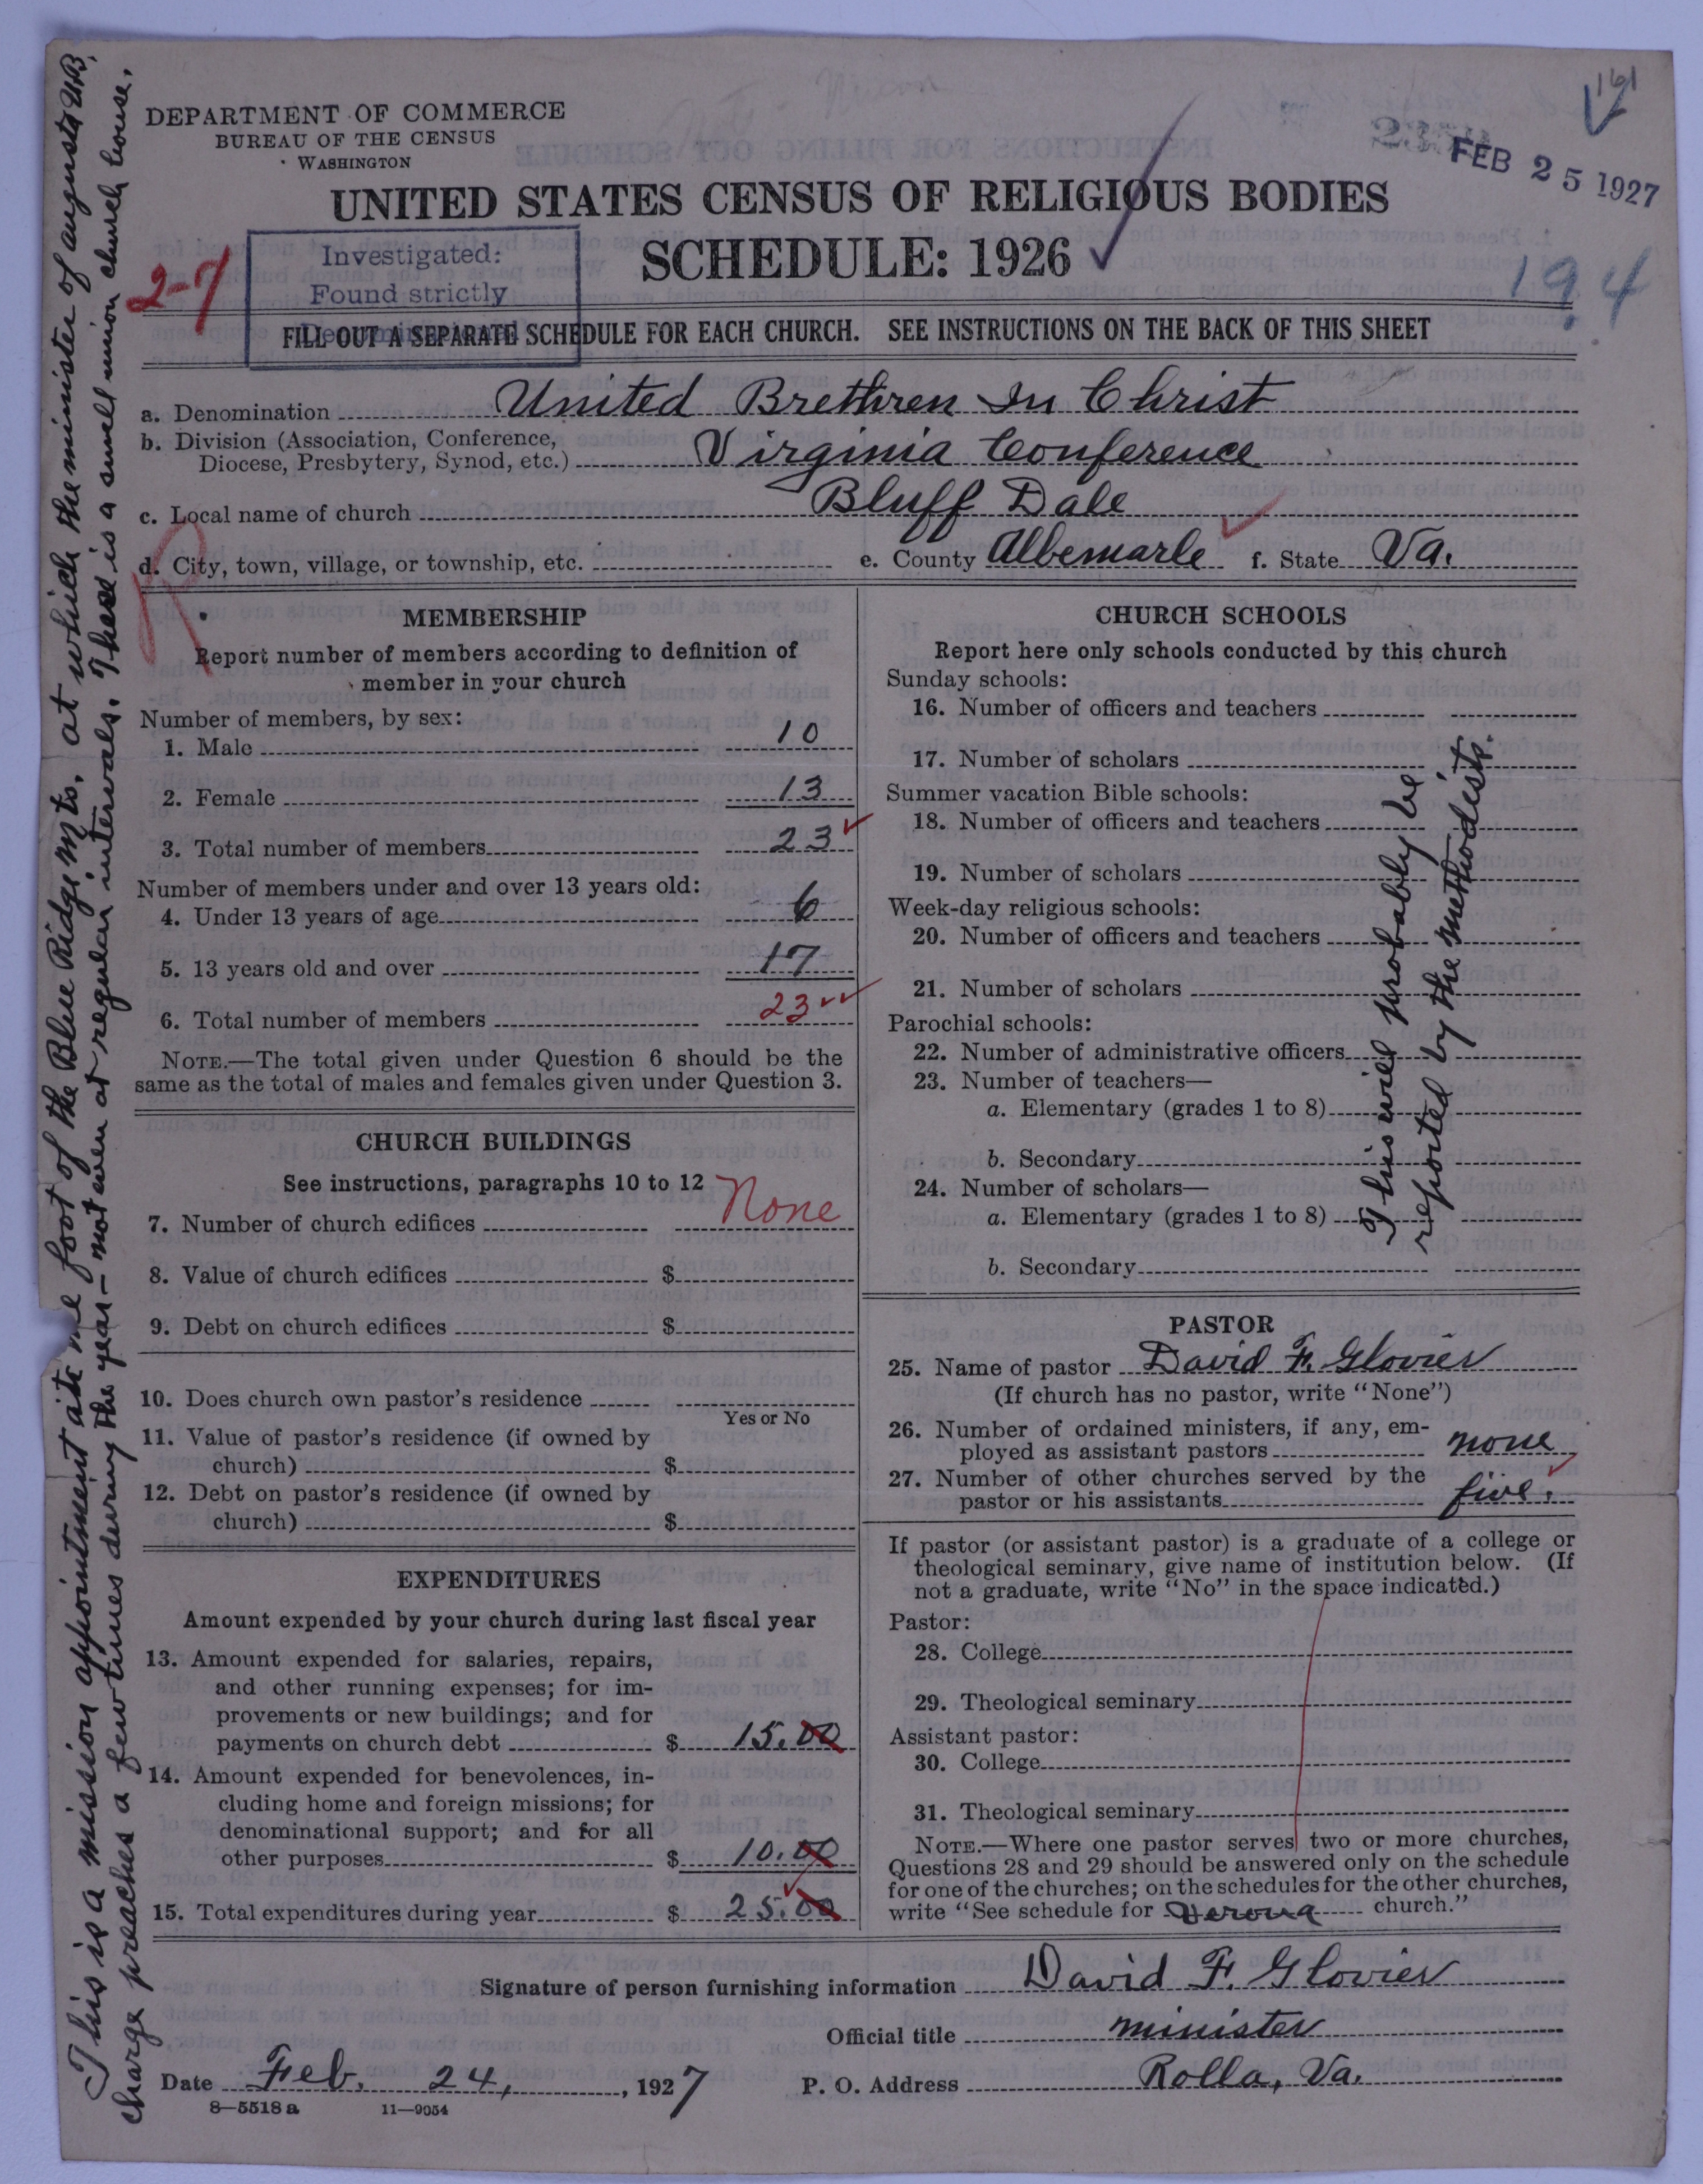 DEPARTMENT OF COMMERCE
BUREAU OF THE CENSUS
WASHINGTON
FEB 25 1927
UNITED STATES CENSUS OF RELIGIOUS BODIES
SCHEDULE: 1926
194
2-7
Investigated:
Found strictly
Denominational
FILL OUT A SEPARATE SCHEDULE FOR EACH CHURCH. SEE INSTRUCTIONS ON THE BACK OF THIS SHEET
a. Denomination United Brethren In Christ
b. Division (Association, Conference,
Diocese, Presbytery, Synod, etc.) Virginia Conference
c. Local name of church Bluff Dale
d. City, town, village, or township, etc. e. County Albemarle f. State Va.
MEMBERSHIP
Report number of members according to definition of
member in your church
Number of members, by sex:
1. Male 10
2. Female 13
3. Total number of members 23
Number of members under and over 13 years old:
4. Under 13 years of age 6
5. 13 years old and over 17
6. Total number of members 23
NOTE.—The total given under Question 6 should be the
same as the total of males and females given under Question 3.
CHURCH BUILDINGS
See instructions, paragraphs 10 to 12
7. Number of church edifices None
8. Value of church edifices $
9. Debt on church edifices $
10. Does church own pastor's residence
Yes or No
11. Value of pastor's residence (if owned by
church) $
12. Debt on pastor's residence (if owned by
church) $
EXPENDITURES
Amount expended by your church during last fiscal year
13. Amount expended for salaries, repairs,
and other running expenses; for im-
provements or new buildings; and for
payments on church debt $ 15.00
14. Amount expended for benevolences, in-
cluding home and foreign missions; for
denominational support; and for all
other purposes $ 10.00
15. Total expenditures during year $ 25.00
CHURCH SCHOOLS
Report here only schools conducted by this church
Sunday schools:
16. Number of officers and teachers
17. Number of scholars
Summer vacation Bible schools:
18. Number of officers and teachers
19. Number of scholars
Week-day religious schools:
20. Number of officers and teachers
21. Number of scholars
Parochial schools:
22. Number of administrative officers
23. Number of teachers—
a. Elementary (grades 1 to 8)
b. Secondary
24. Number of scholars—
a. Elementary (grades 1 to 8)
b. Secondary
This will probably be
reported by the methodists.
PASTOR
25. Name of pastor David F. Glovier
(If church has no pastor, write "None")
26. Number of ordained ministers, if any, em-
ployed as assistant pastors none
27. Number of other churches served by the
pastor or his assistants five.
If pastor (or assistant pastor) is a graduate of a college or
theological seminary, give name of institution below. (If
not a graduate, write "No" in the space indicated.)
Pastor:
28. College
29. Theological seminary
Assistant pastor:
30. College
31. Theological seminary
NOTE.—Where one pastor serves two or more churches,
Questions 28 and 29 should be answered only on the schedule
for one of the churches; on the schedules for the other churches,
write "See schedule for Verona church."
Signature of person furnishing information David F. Glovier
Official title minister
Date Feb. 24, 1927 P. O. Address Rolla, Va.
8—5518 a 11—9054
This is a mission appointment at the foot of the Blue Ridge Mts. at which the minister of augusta U.B.
charge preaches a few times during the year—not even at regular intervals. There is a small union church house.